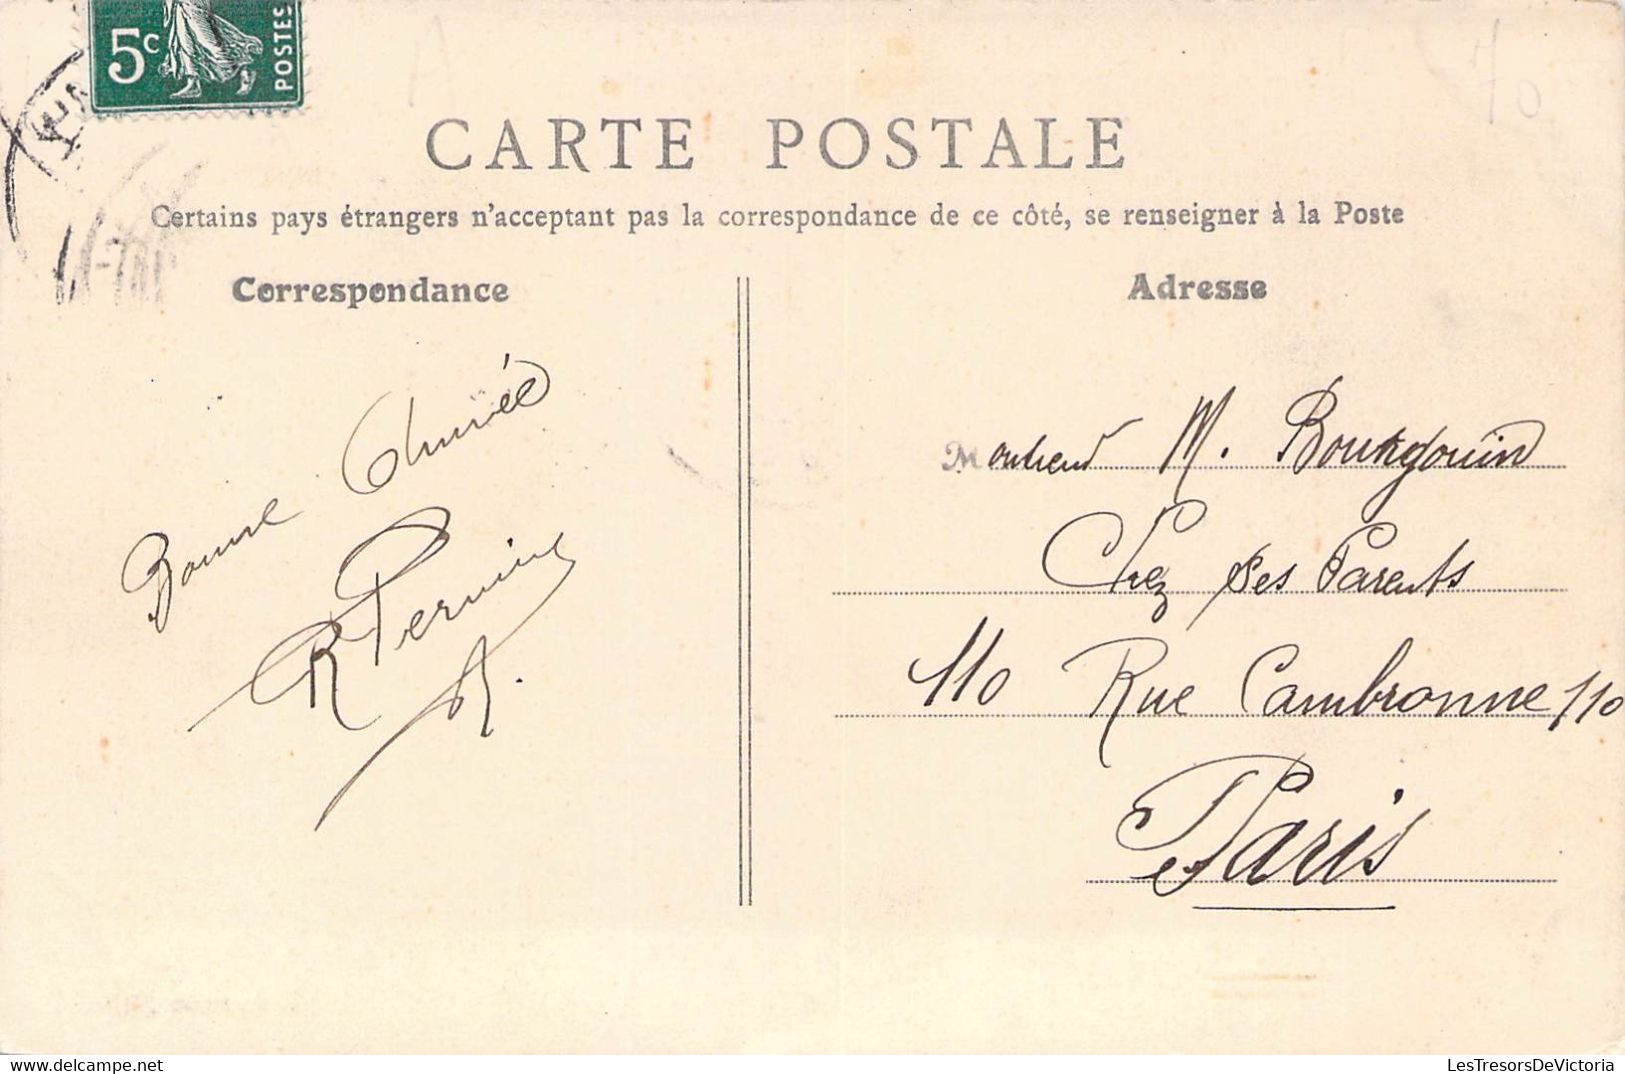 5c
POSTES
CARTE POSTALE
Certains pays étrangers n'acceptant pas la correspondance de ce côté, se renseigner à la Poste
Correspondance
Adresse
Bonne Année
R
Monsieur M. Bourgouin
Chez Ses Parents
110 Rue Cambronne 110
Paris
70
www.delcampe.net
LesTresorsDeVictoria